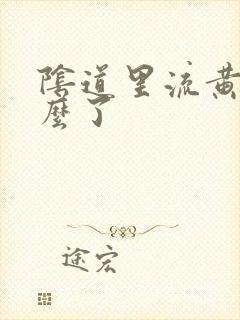 陰道里流黄
麼了
途宏